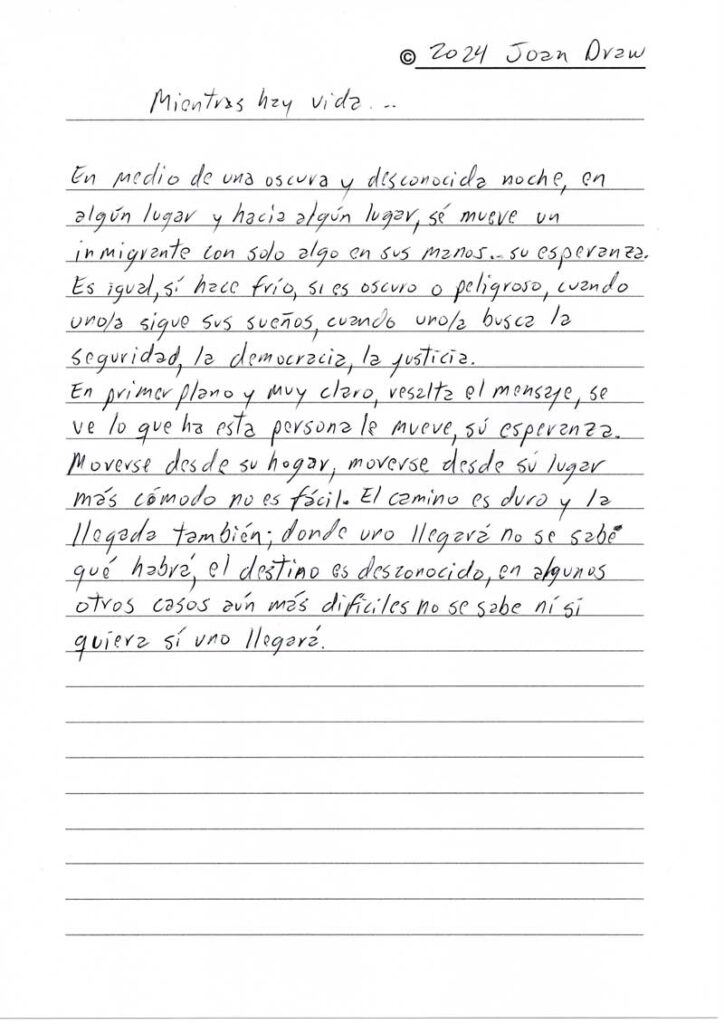 © 2024 Joan Draw
Mientras hay vida...
En medio de una oscura y desconocida noche, en
algún lugar y hacia algún lugar, sé mueve un
inmigrante con solo algo en sus manos... su esperanza.
Es igual, sí hace frío, si es oscuro o peligroso, cuando
uno/a sigue sus sueños, cuando uno/a busca la
seguridad, la democracia, la justicia.
En primer plano y muy claro, resalta el mensaje, se
ve lo que ha esta persona le mueve, sú esperanza.
Moverse desde su hogar, moverse desde sú lugar
más cómodo no es fácil. El camino es duro y la
llegada también; donde uno llegará no se sabe
qué habrá, el destino es desconocido, en algunos
otros casos aún más difíciles no se sabe ní si
quiera sí uno llegará.